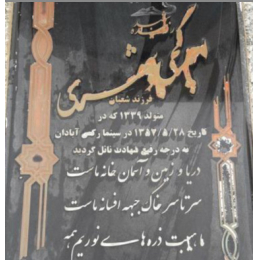 فرزند شعبان
متولد ۱۳۳۹ که در
تاریخ ۱۳۵۷/۵/۲۸ در سینما رکس آبادان
به درجه رفیع شهادت نائل گردید
دریا و زمین و آسمان خانه ماست
سرتاسر خاک جبهه افسانه ماست
ما هیبت ذره های نوریم همه